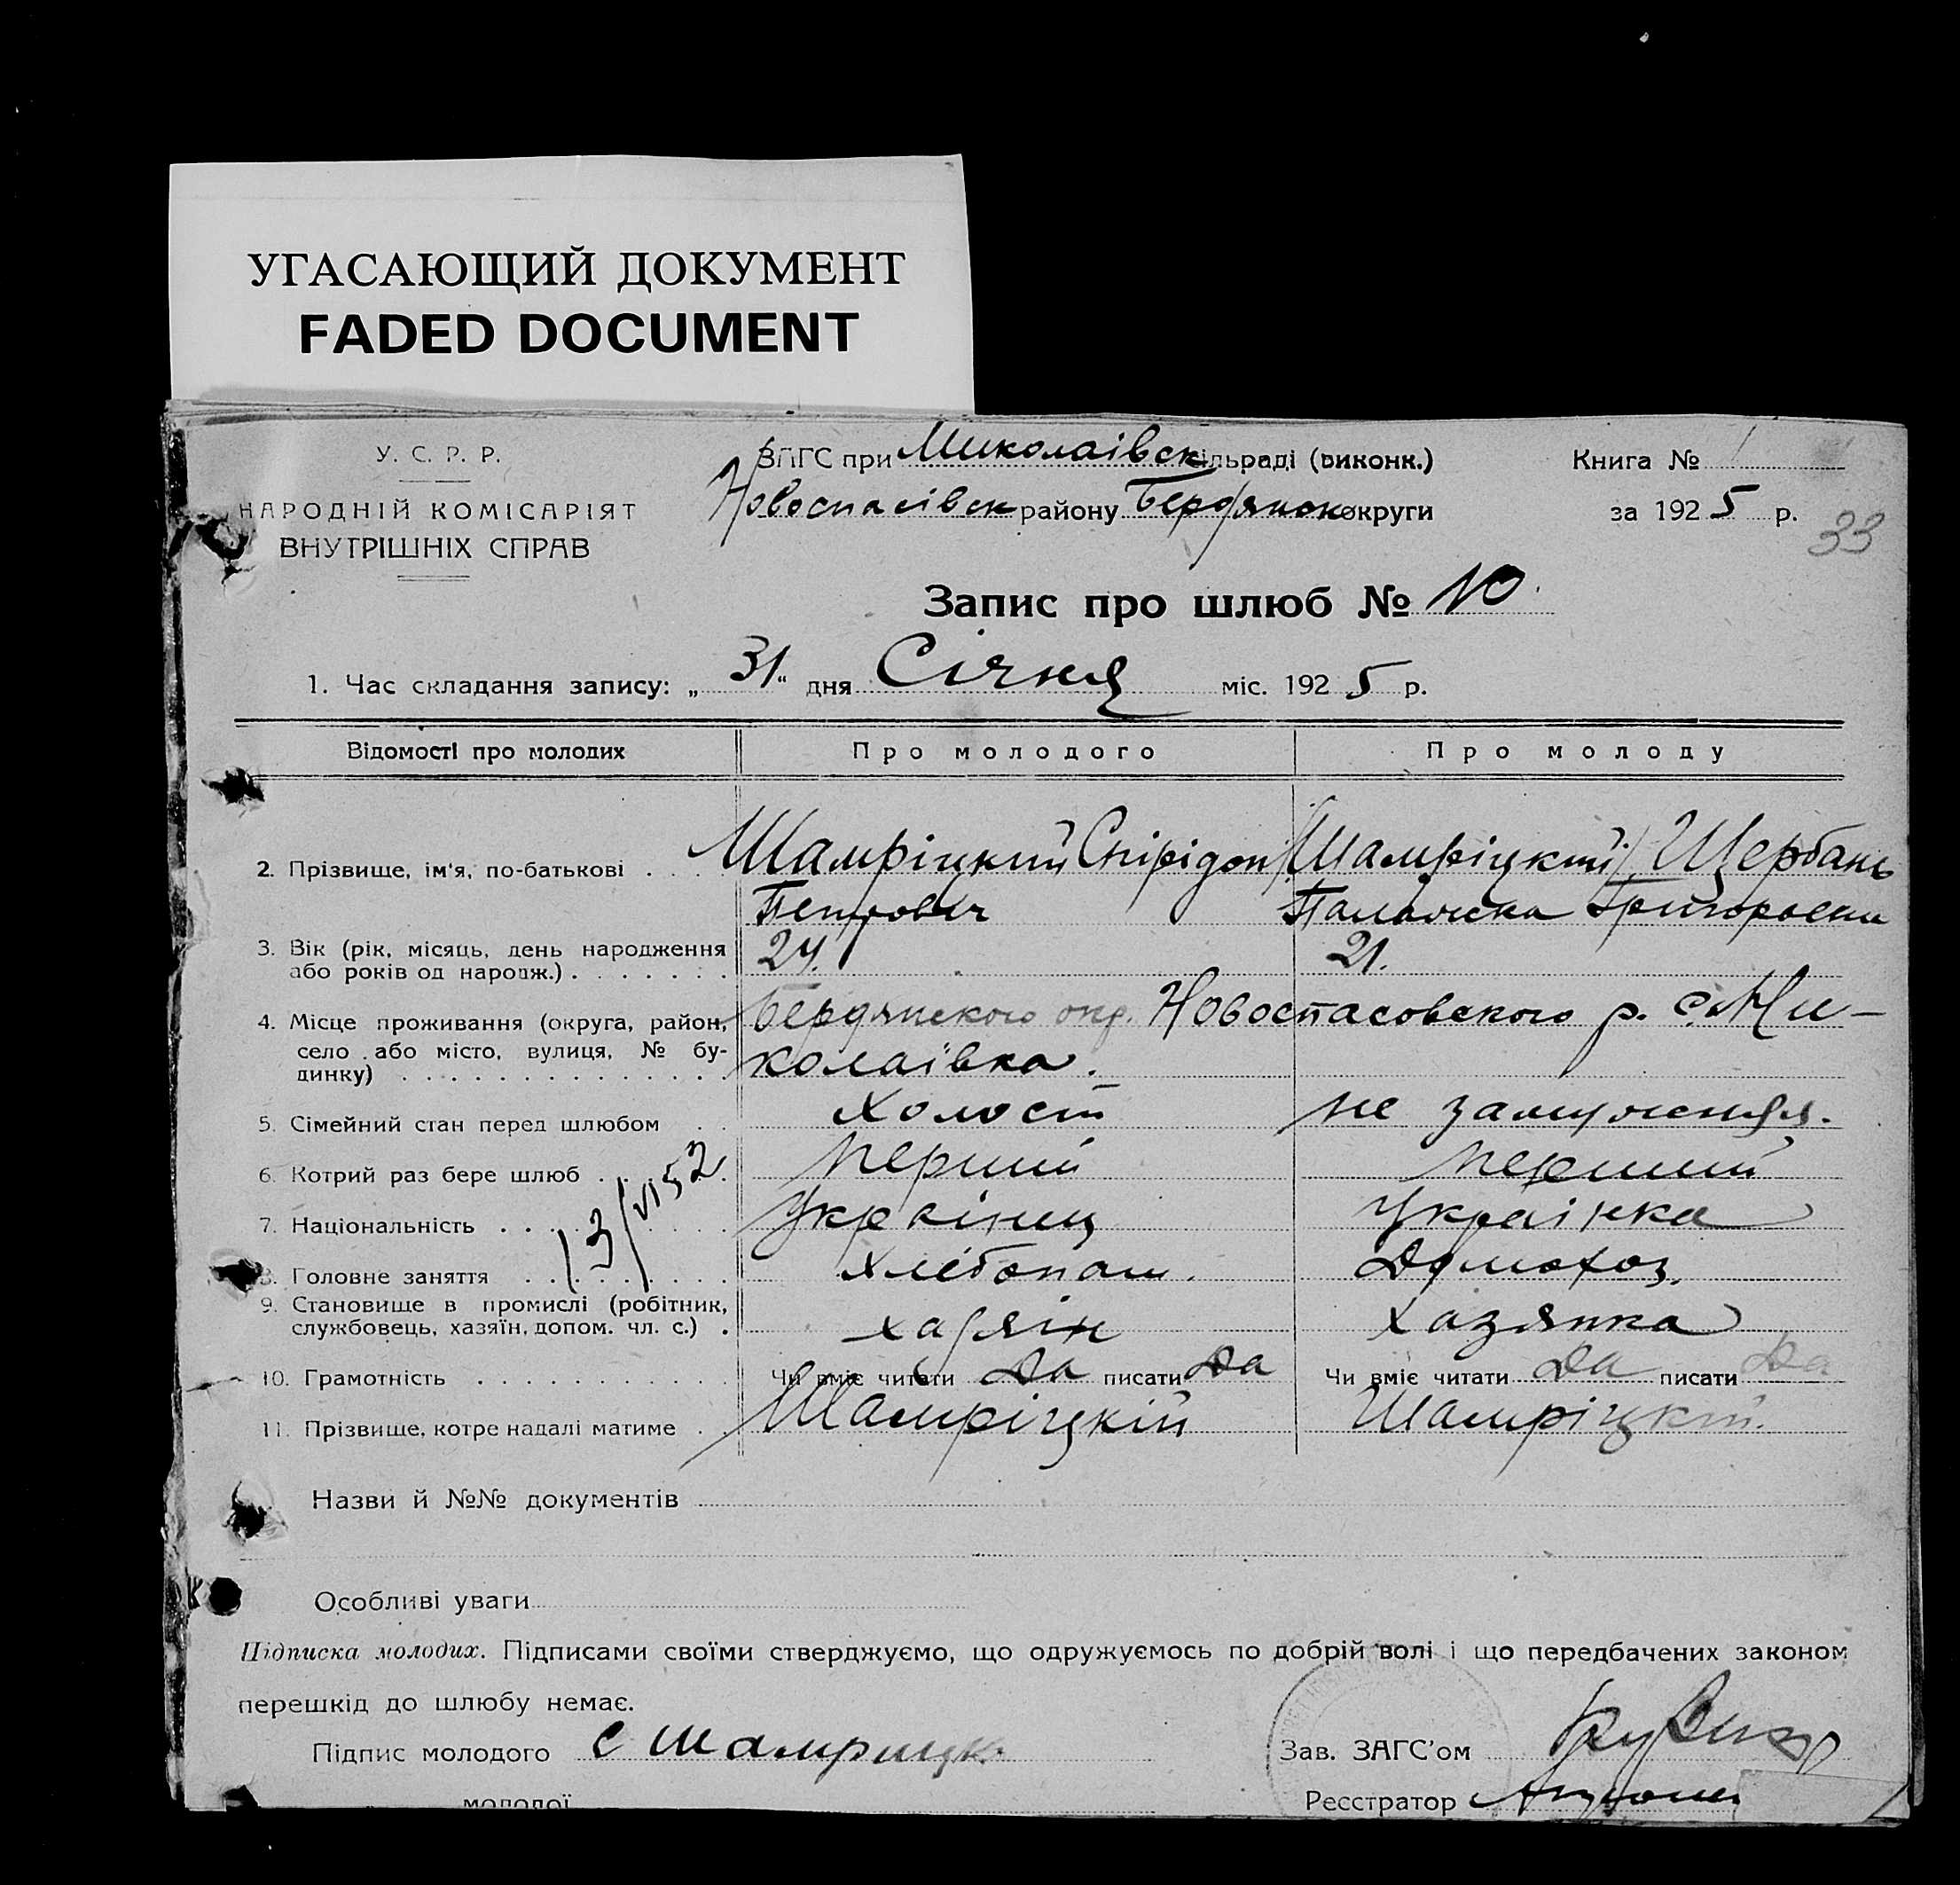 УГАСАЮЩИЙ ДОКУМЕНТ
FADED DOCUMENT
У. С. Р. Р.
НАРОДНІЙ КОМІСАРІЯТ
ВНУТРІШНІХ СПРАВ
ЗАГС при Миколаівск сільраді (виконк.)
Новоспасівск району Бердянск округи
Книга № 1
за 1925 р.
33
Запис про шлюб № 10.
1. Час складання запису: „31“ дня Січня міс. 1925 р.
Відомості про молодих Про молодого Про молоду
2. Прізвище, ім'я, по-батькові . . . . Шамріцкий Спірідон /Шамріцкій/ Щербань
Петрович Палажка Григорьевна
3. Вік (рік, місяць, день народження
або років од народж.) . . . . . . . 24. 21.
4. Місце проживання (округа, район, Бердянского окр. Новоспасовского р. с. Ми-
село або місто, вулиця, № бу- колаівка.
динку) . . . . . . . . . . . . . .
5. Сімейний стан перед шлюбом . . Холост не замужняя.
6. Котрий раз бере шлюб . . . . . . перший перший
13/VI 52
7. Національність . . . . . . . . . . Українец Українка
8. Головне заняття . . . . . . . . . хлебопаш. Домохоз.
9. Становище в промислі (робітник,
службовець, хазяїн, допом. чл. с.) . хазяін хазяпка
10. Грамотність . . . . . . . . . . . Чи вміє читати Да писати Да Чи вміє читати Да писати Да
11. Прізвище, котре надалі матиме . . Шамріцкій Шамріцкій.
Назви й №№ документів
Особливі уваги
Підписка молодих. Підписами своїми стверджуємо, що одружуємось по добрій волі і що передбачених законом
перешкід до шлюбу немає.
Підпис молодого С Шамрицк
Зав. ЗАГС'ом
молодої
Реєстратор